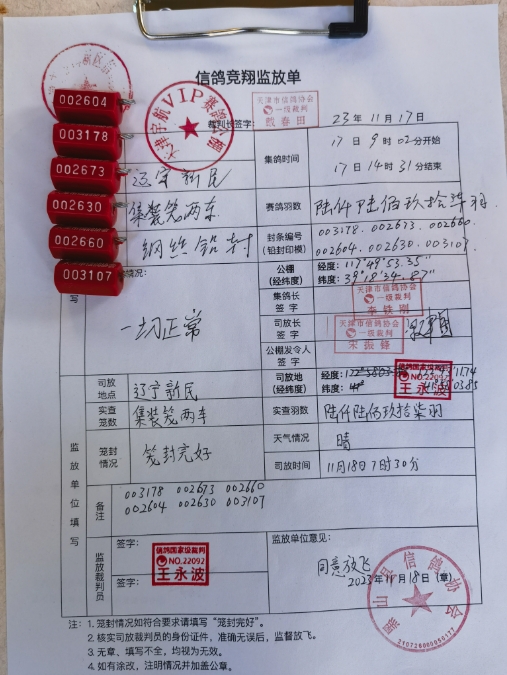 信鸽竞翔监放单
002604
003178
002673
002630
002660
003107
天津宁航VIP赛鸽公棚
裁判长签字:
天津市信鸽协会
一级裁判
23年11月17日
集鸽时间
17日9时02分开始
17日14时31分结束
辽宁新民
集装笼两车
赛鸽羽数
陆仟陆佰玖拾柒羽
钢丝铅封
封条编号
(铅封印模)
003178. 002673. 002660.
002604. 002630. 003107.
情况:
一切正常
公棚
(经纬度)
经度:117°49'53.35"
纬度:39°18'34.87"
集鸽长
签字
天津市信鸽协会
一级裁判
李铁刚
司放长
签字
天津市信鸽协会
一级裁判
宋振锋
公棚发令人
签字
写
司放
地点
辽宁新民
司放地
(经纬度)
经度:
纬度:
信鸽国家级裁判
NO.22092
王永波
实查
笼数
集装笼两车
实查羽数
陆仟陆佰玖拾柒羽
监放单位填写
笼封
情况
笼封完好
天气情况
晴
司放时间
11月18日7时30分
备注
003178 002673 002660
002604 002630 003107
监放裁判员
签字:
签字:
信鸽国家级裁判
NO.22092
王永波
监放单位意见:
同意放飞
2023年11月18日(章)
210726000050177
注:1. 笼封情况如符合要求请填写“笼封完好”。
2. 核实司放裁判员的身份证件,准确无误后,监督放飞。
3. 无章、填写不全,均视为无效。
4. 如有涂改,注明情况并加盖公章。